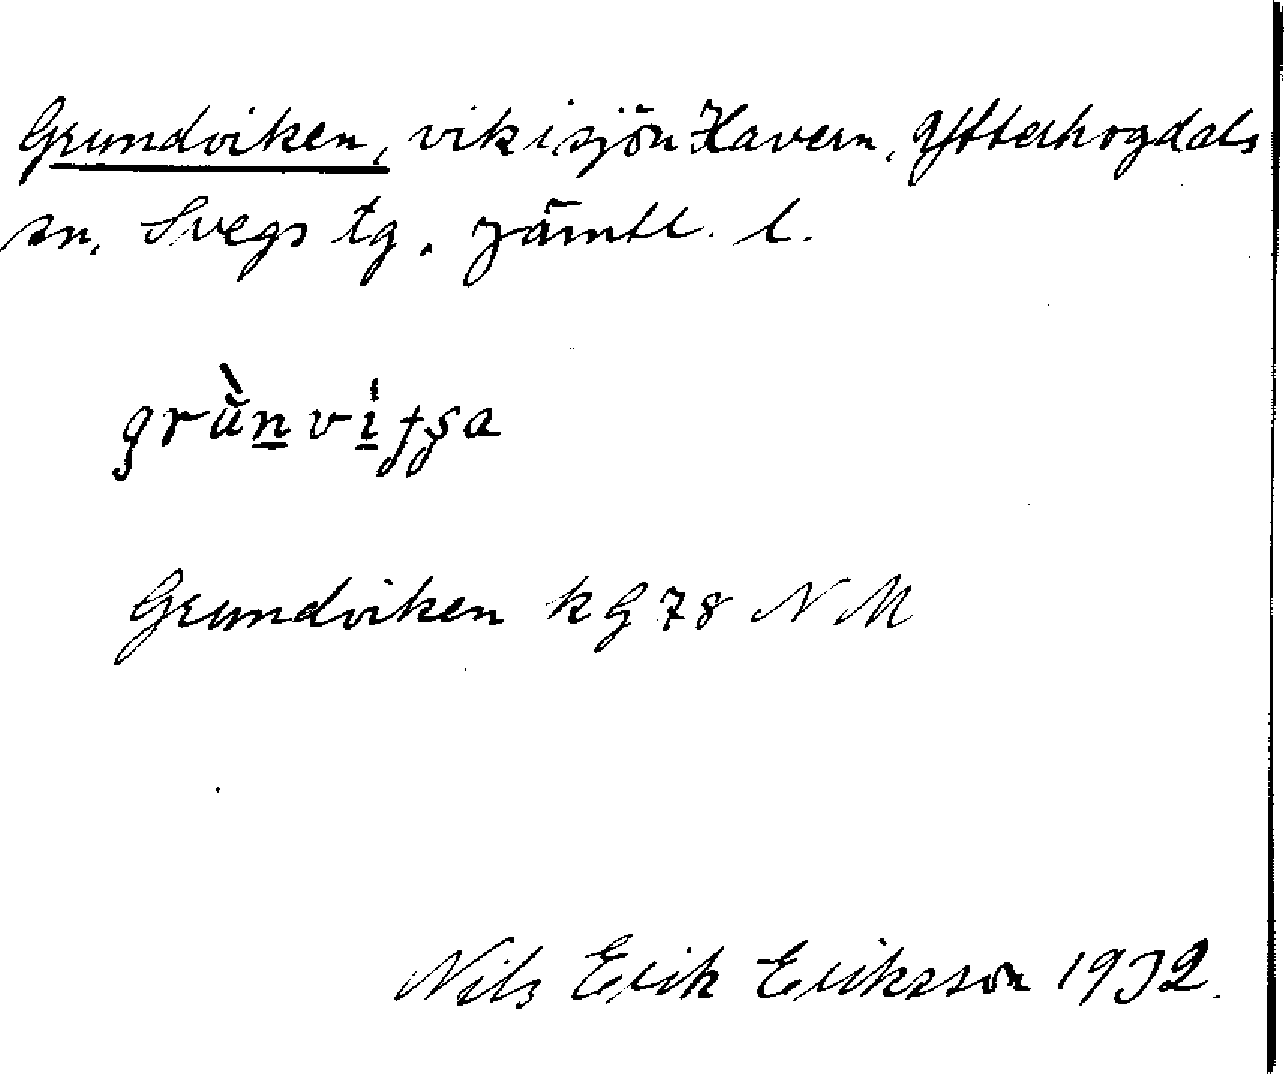 Grundviken, vik i sjön Havern, Ytterhogdals
sn, Svegs tg. Jämtl. l.
Grundviken k G 78 NM
Nils Erik Eriksson 1932.